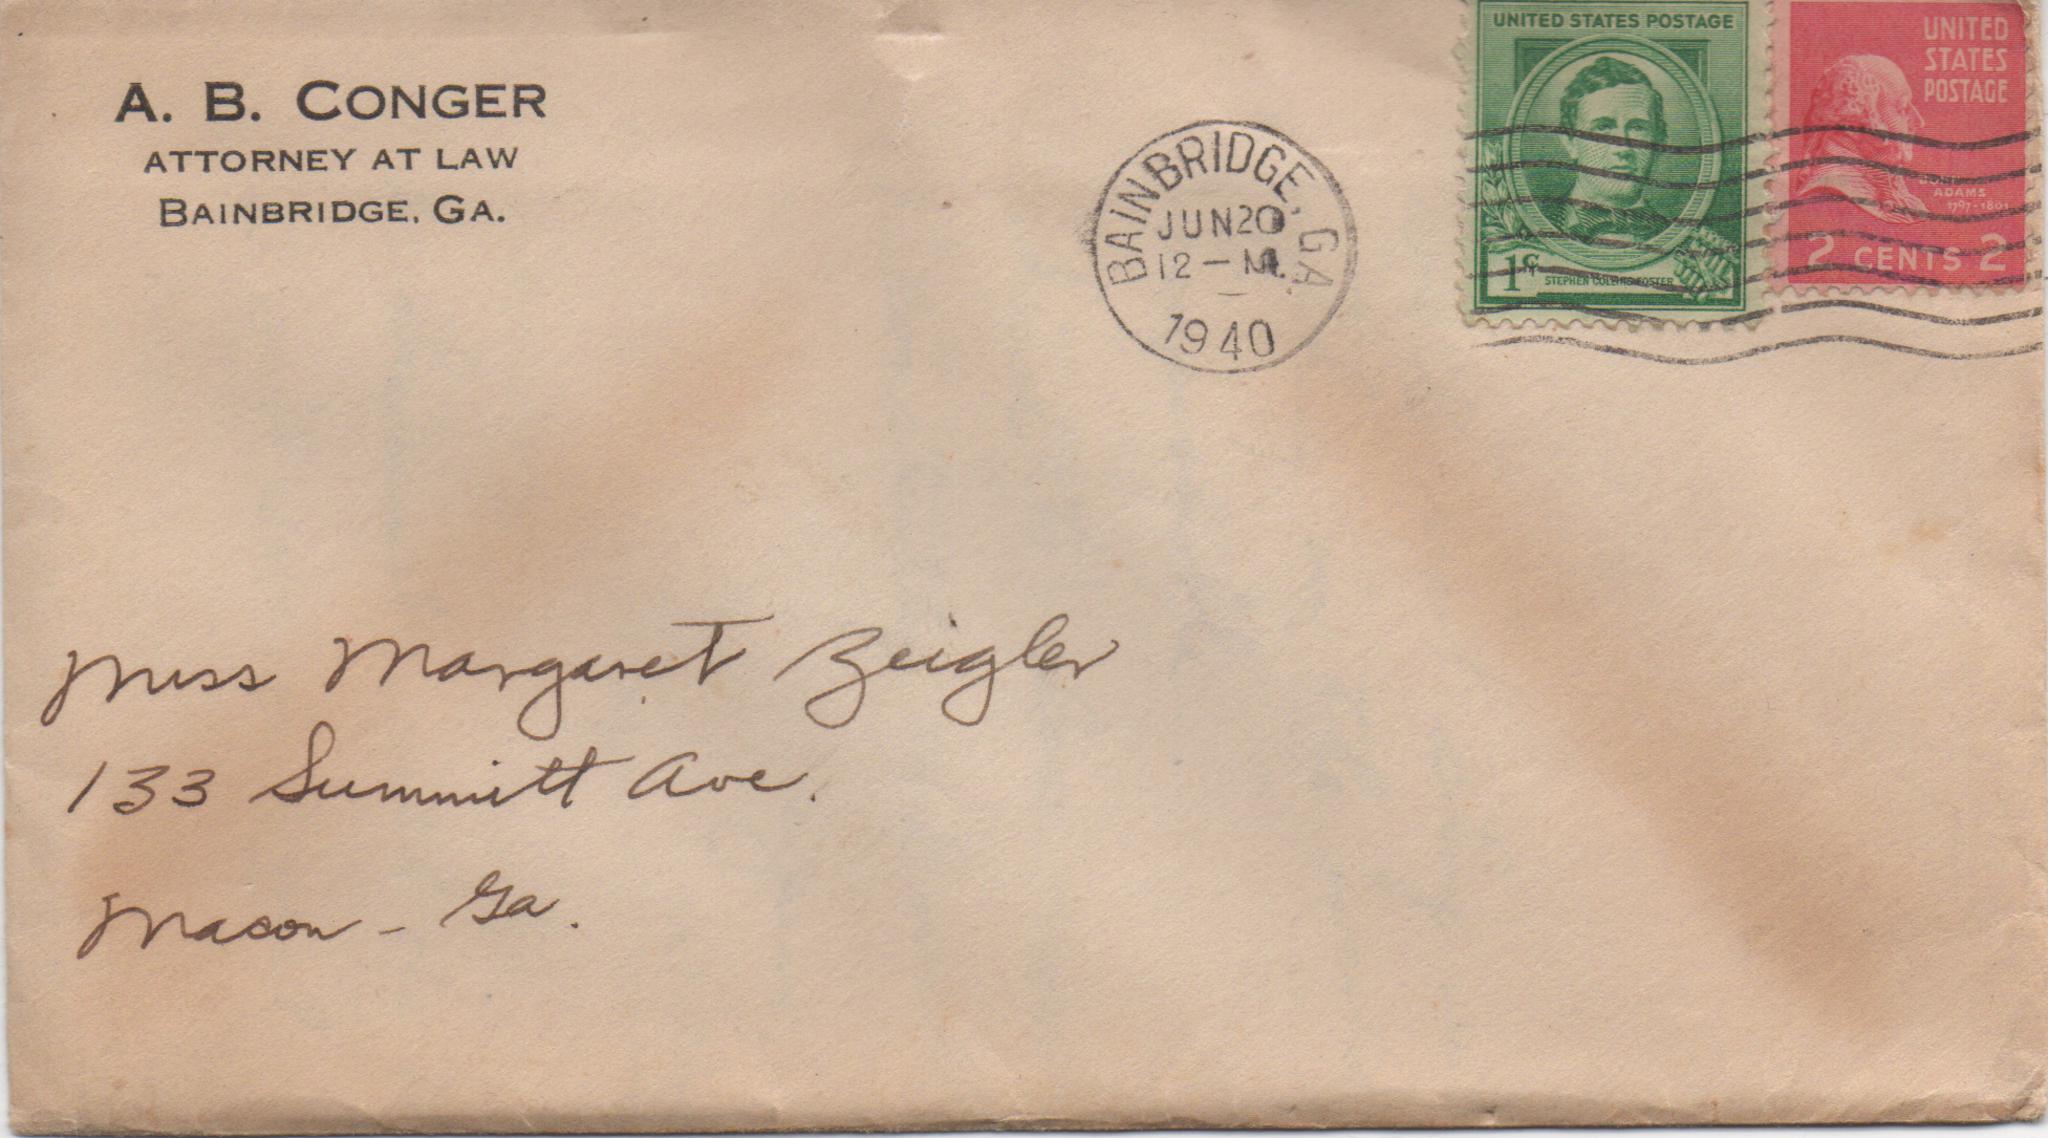 A. B. CONGER
ATTORNEY AT LAW
BAINBRIDGE, GA.
BAINBRIDGE, GA.
JUN 20
12 — M.
1940
UNITED STATES POSTAGE
1¢
STEPHEN COLLINS FOSTER
UNITED
STATES
POSTAGE
ADAMS
1797-1801
2 CENTS 2
Miss Margaret Zeigler
133 Summitt Ave.
Macon - Ga.